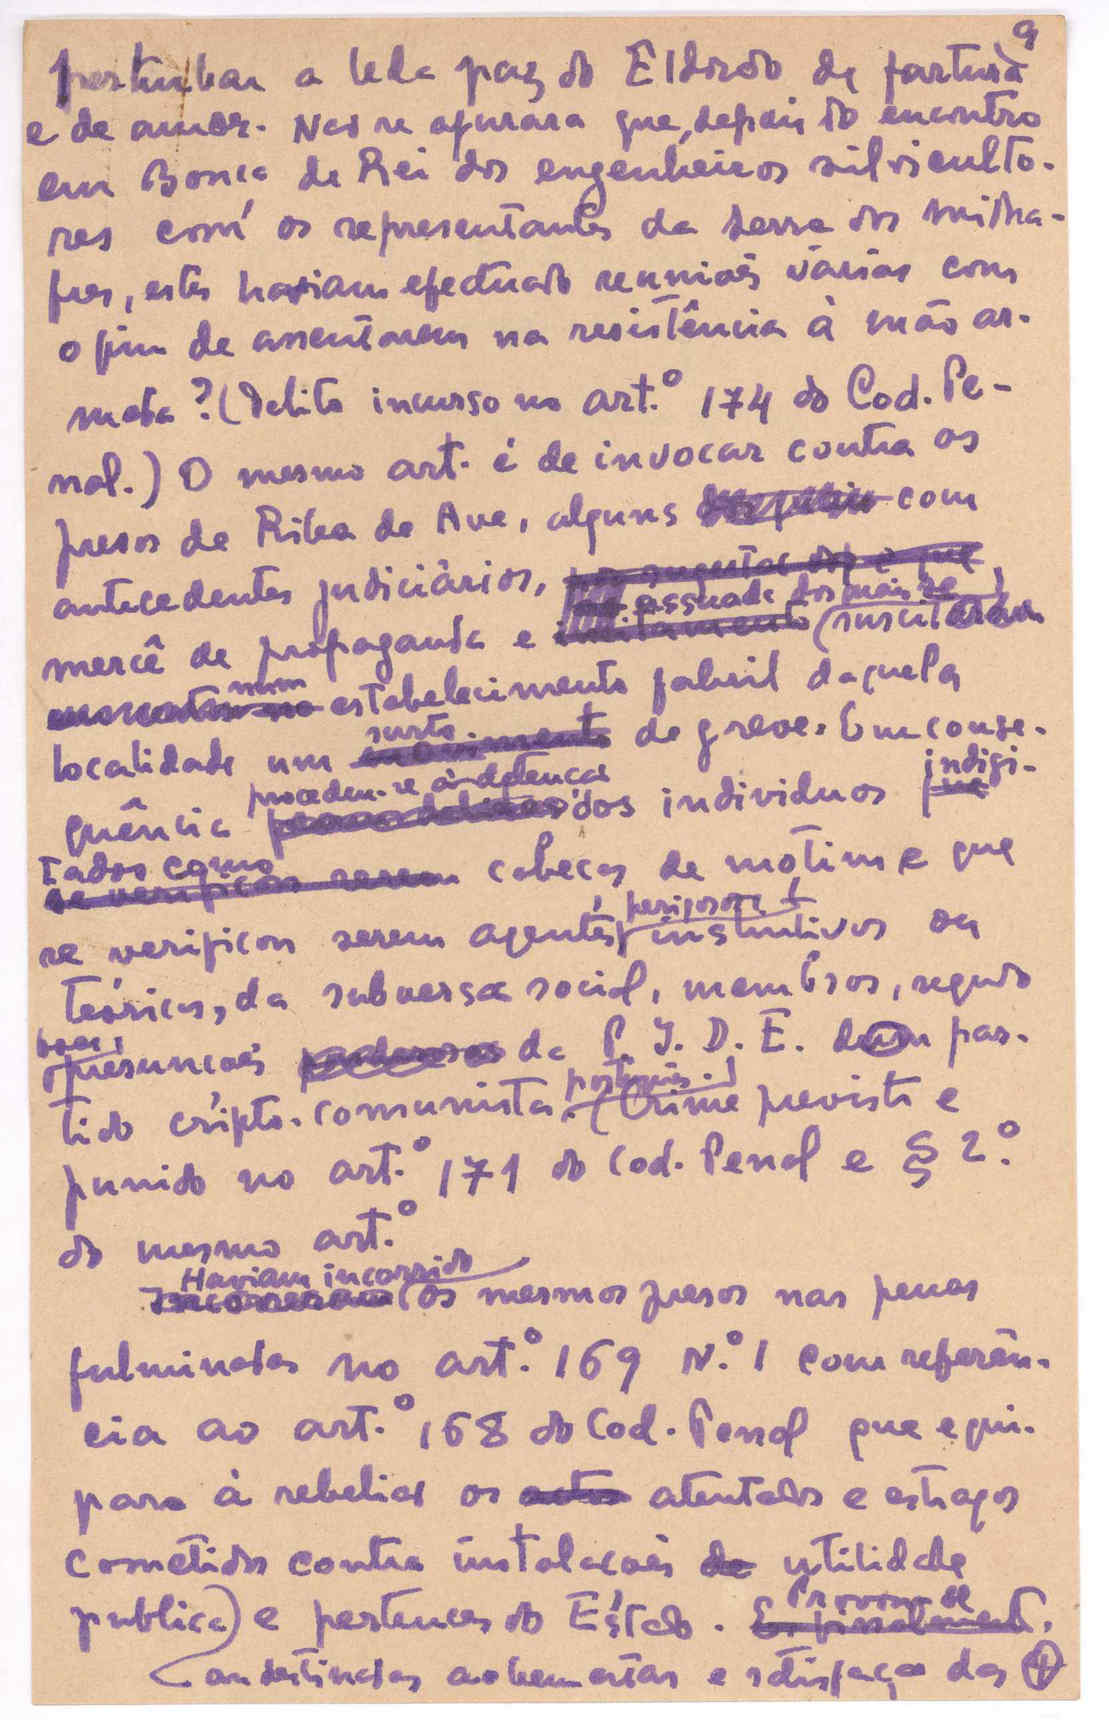 9
perturbar a leda paz do Eldorado da fartura
e de amor. Não se apurara que, depois do encontro
em Bouça de Rei dos engenheiros silviculto-
res com os representantes da serra dos Milha-
fres, estes haviam efectuado reuniões várias com
o fim de assentarem na resistência à mão ar-
mada? (Delito incurso no art.º 174 do Cod. Pe-
nal.) O mesmo art. é de invocar contra os
presos de Riba de Ave, alguns com
antecedentes judiciários,
assuada dos mais, se
mercê de propaganda e incitamento (suscitaram
num estabelecimento fabril daquela
localidade um surto movimento de greve. Em conse-
procedeu-se à detenção indigi-
quência dos individuos que
tados como
se verificou serem cabeças de motim e que
perigosos
se verificou serem agentes, instintivos ou
teóricos, da subversão social, membros, segundo
boas
presunções da P. I. D. E. dum par-
português.
tido cripto-comunista. (Crime previsto e
punido no art.º 171 do Cod. Penal e § 2.º
do mesmo art.º
Haviam incorrido
Incorreram (os mesmos presos nas penas
fulminadas no art.º 169 N.º 1 com referên-
cia ao art.º 168 do Cod. Penal que equi-
para à rebelião os actos atentados e estragos
cometidos contra instalações de utilidade
Provou-se
publica) e pertences do Estado. E finalmente,
ou destinadas ao bem estar e satisfação das